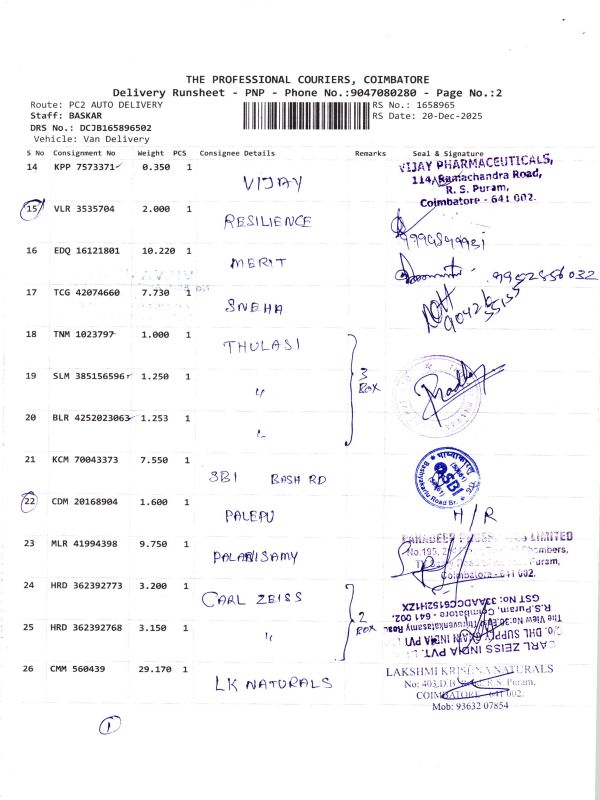 THE PROFESSIONAL COURIERS, COIMBATORE
Delivery Runsheet - PNP - Phone No.:9047080280 - Page No.:2
Route: PC2 AUTO DELIVERY
RS No.: 1658965
Staff: BASKAR
RS Date: 20-Dec-2025
DRS No.: DCJB165896502
Vehicle: Van Delivery
S No Consignment No Weight PCS Consignee Details Remarks Seal & Signature
14 KPP 7573371 0.350 1 VIJAY
VIJAY PHARMACEUTICALS,
114, Ramachandra Road,
R. S. Puram,
Coimbatore - 641 002.
15 VLR 3535704 2.000 1 RESILIENCE
16 EDQ 16121801 10.220 1 MERIT 9952556032
17 TCG 42074660 7.730 1 SNEHA
18 TNM 1023797 1.000 1 THULASI
19 SLM 385156596 1.250 1 "
3 BOX
20 BLR 4252023063 1.253 1 "
21 KCM 70043373 7.550 1 SBI BASH RD
SBI
22 CDM 20168904 1.600 1 PALEPU H/R
23 MLR 41994398 9.750 1 PALANISAMY
LIMITED
Coimbatore - 641 002.
24 HRD 362392773 3.200 1 CARL ZEISS
25 HRD 362392768 3.150 1 "
2 BOX
CARL ZEISS INDIA PVT.
C/O. DHL SUPPLY CHAIN INDIA PVT
R.S.Puram, Coimbatore - 641 002.
GST No: 33AADCC6152H1ZX
26 CMM 560439 29.170 1 LK NATURALS
LAKSHMI KRISHNA NATURALS
No: 403, D.B. Road, R.S. Puram,
COIMBATORE - 641 002.
Mob: 93632 07854
1